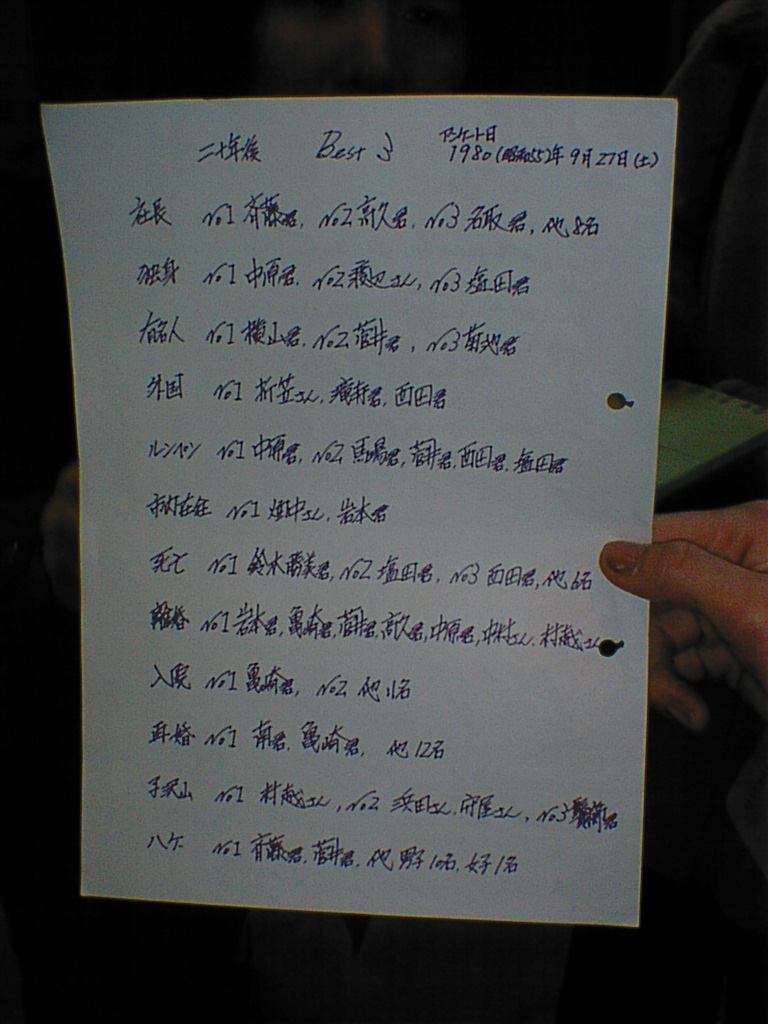 二十年後 Best 3 アンケート日
1980(昭和55)年 9月27日(土)
社長 No1 斉藤君, No2 高久君, No3 名取君, 他8名
独身 No1 中原君, No2 さん, No3 塩田君
有名人 No1 横山君, No2 菅井君, No3 菊地君
外国 No1 折笠さん, 君, 西田君
ルンペン No1 中原君, No2 馬場君, 菅井君, 西田君, 塩田君
市内在住 No1 畑中さん, 岩本君
死亡 No1 鈴木君, No2 塩田君, No3 西田君, 他6名
離婚 No1 岩本君, 亀崎君, 菅井君, 高久君, 中原君, 中村さん, 村越さん
入院 No1 亀崎君, No2 他11名
再婚 No1 南君, 亀崎君, 他12名
子沢山 No1 村越さん, No2 浜田さん, 守屋さん, No3 君
ハゲ No1 斉藤君, 菅井君, 他男子10名, 女子1名